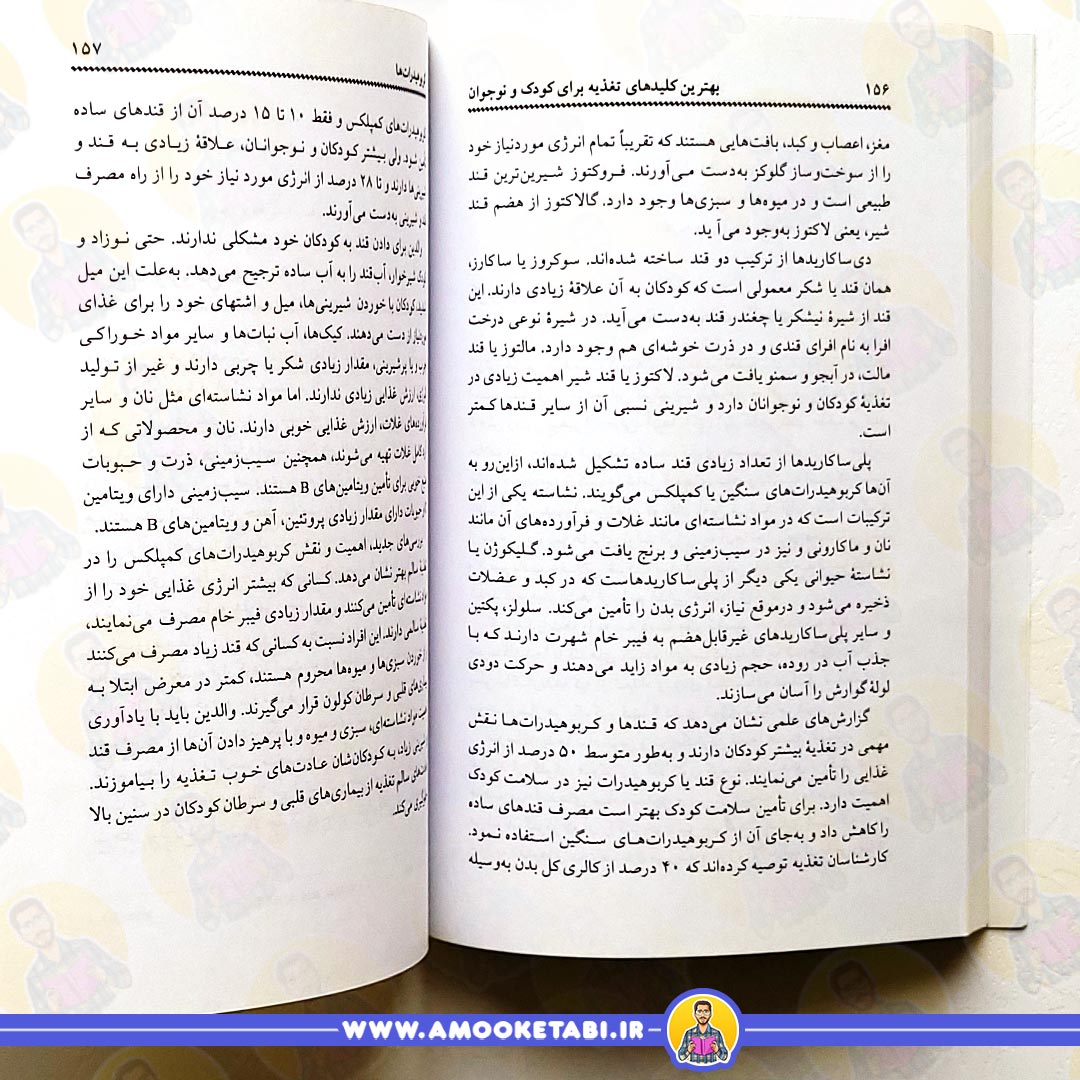 ۱۵۶
بهترین کلیدهای تغذیه برای کودک و نوجوان
مغز، اعصاب و کبد، بافت‌هایی هستند که تقریباً تمام انرژی موردنیاز خود
را از سوخت‌وساز گلوکز به‌دست می‌آورند. فروکتوز شیرین‌ترین قند
طبیعی است و در میوه‌ها و سبزی‌ها وجود دارد. گالاکتوز از هضم قند
شیر، یعنی لاکتوز به‌وجود می‌آ ید.
دی‌ساکاریدها از ترکیب دو قند ساخته شده‌اند. سوکروز یا ساکارز،
همان قند یا شکر معمولی است که کودکان به آن علاقهٔ زیادی دارند. این
قند از شیرهٔ نیشکر یا چغندر قند به‌دست می‌آید. در شیرهٔ نوعی درخت
افرا به نام افرای قندی و در ذرت خوشه‌ای هم وجود دارد. مالتوز یا قند
مالت، در آبجو و سمنو یافت می‌شود. لاکتوز یا قند شیر اهمیت زیادی در
تغذیهٔ کودکان و نوجوانان دارد و شیرینی نسبی آن از سایر قندها کمتر
است.
پلی‌ساکاریدها از تعداد زیادی قند ساده تشکیل شده‌اند، ازاین‌رو به
آن‌ها کربوهیدرات‌های سنگین یا کمپلکس می‌گویند. نشاسته یکی از این
ترکیبات است که در مواد نشاسته‌ای مانند غلات و فرآورده‌های آن مانند
نان و ماکارونی و نیز در سیب‌زمینی و برنج یافت می‌شود. گلیکوژن یا
نشاستهٔ حیوانی یکی دیگر از پلی‌ساکاریدهاست که در کبد و عضلات
ذخیره می‌شود و درموقع نیاز، انرژی بدن را تأمین می‌کند. سلولز، پکتین
و سایر پلی‌ساکاریدهای غیرقابل‌هضم به فیبر خام شهرت دارند که با
جذب آب در روده، حجم زیادی به مواد زاید می‌دهند و حرکت دودی
لولهٔ گوارش را آسان می‌سازند.
گزارش‌های علمی نشان می‌دهد که قندها و کربوهیدرات‌ها نقش
مهمی در تغذیهٔ بیشتر کودکان دارند و به‌طور متوسط ۵۰ درصد از انرژی
غذایی را تأمین می‌نمایند. نوع قند یا کربوهیدرات نیز در سلامت کودک
اهمیت دارد. برای تأمین سلامت کودک بهتر است مصرف قندهای ساده
را کاهش داد و به‌جای آن از کربوهیدرات‌های سنگین استفاده نمود.
کارشناسان تغذیه توصیه کرده‌اند که ۴۰ درصد از کالری کل بدن به‌وسیله
۱۵۷
کمپلکس و فقط ۱۰ تا ۱۵ درصد آن از قندهای ساده
شود. ولی بیشتر کودکان و نوجوانان، علاقهٔ زیادی به قند و
دارند و تا ۲۸ درصد از انرژی مورد نیاز خود را از راه مصرف
شیرینی به‌دست می‌آورند.
والدین برای دادن قند به کودکان خود مشکلی ندارند. حتی نوزاد و
شیرخوار، آب‌قند را به آب ساده ترجیح می‌دهد. به‌علت این میل
کودکان با خوردن شیرینی‌ها، میل و اشتهای خود را برای غذای
از دست می‌دهند. کیک‌ها، آب نبات‌ها و سایر مواد خوراکی
و یا پرشیرینی، مقدار زیادی شکر یا چربی دارند و غیر از تولید
ارزش غذایی زیادی ندارند. اما مواد نشاسته‌ای مثل نان و سایر
غلات، ارزش غذایی خوبی دارند. نان و محصولاتی که از
کامل غلات تهیه می‌شوند، همچنین سیب‌زمینی، ذرت و حبوبات
خوبی برای تأمین ویتامین‌های B هستند. سیب‌زمینی دارای ویتامین
حبوبات دارای مقدار زیادی پروتئین، آهن و ویتامین‌های B هستند.
بررسی‌های جدید، اهمیت و نقش کربوهیدرات‌های کمپلکس را در
سالم بهتر نشان می‌دهد. کسانی که بیشتر انرژی غذایی خود را از
نشاسته‌ای تأمین می‌کنند و مقدار زیادی فیبر خام مصرف می‌نمایند،
سالمی دارند. این افراد نسبت به کسانی که قند زیاد مصرف می‌کنند
از خوردن سبزی‌ها و میوه‌ها محروم هستند، کمتر در معرض ابتلا به
قلبی و سرطان کولون قرار می‌گیرند. والدین باید با یادآوری
مواد نشاسته‌ای، سبزی و میوه و با پرهیز دادن آن‌ها از مصرف قند
زیاد، به کودکان‌شان عادت‌های خوب تغذیه را بیاموزند.
سالم تغذیه از بیماری‌های قلبی و سرطان کودکان در سنین بالا
می‌کند.
WWW.AMOOKETABI.IR